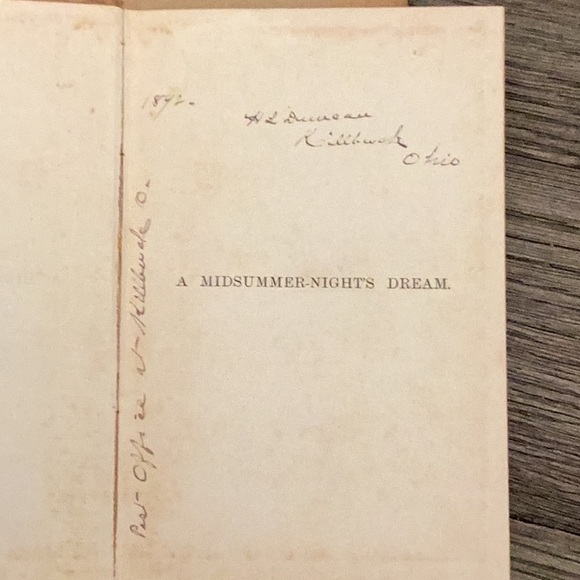 H L Duncan
Killbuck
Ohio
A MIDSUMMER-NIGHT'S DREAM.
Post Office at Killbuck O.